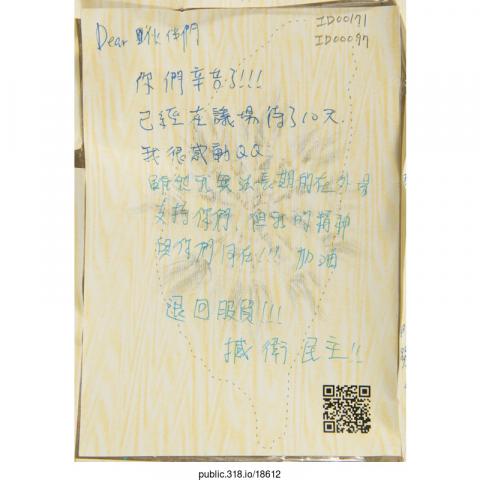 ID00171
ID00097
Dear 夥伴們
你們辛苦了!!!
已經在議場待了10天
我很感動QQ
雖然我無法長期的在外場
支持你們,但我的精神
與你們同在!!! 加油
退回服貿!!!
捍衛民主!!
public.318.io/18612